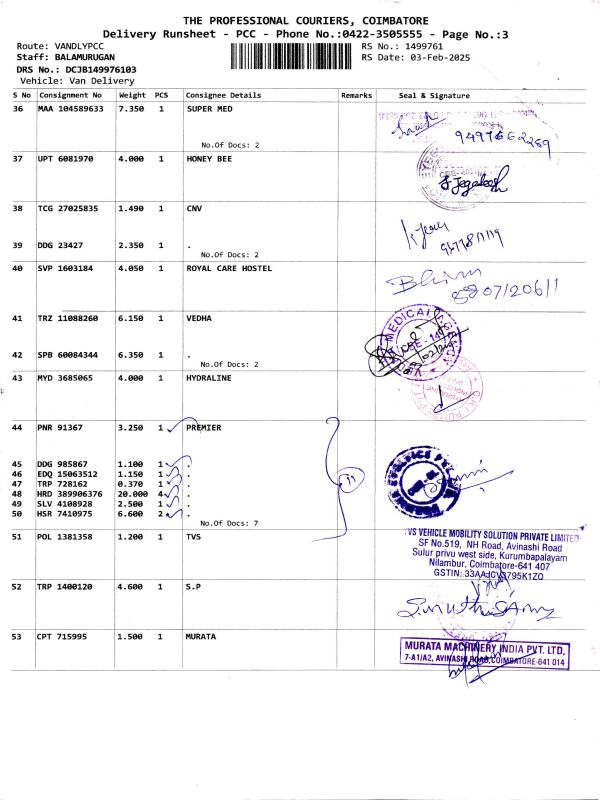 THE PROFESSIONAL COURIERS, COIMBATORE
Delivery Runsheet - PCC - Phone No.:0422-3505555 - Page No.:3
Route: VANDLYPCC RS No.: 1499761
Staff: BALAMURUGAN RS Date: 03-Feb-2025
DRS No.: DCJB149976103
Vehicle: Van Delivery
S No Consignment No Weight PCS Consignee Details Remarks Seal & Signature
36 MAA 104589633 7.350 1 SUPER MED
9497662269
No.Of Docs: 2
37 UPT 6081970 4.000 1 HONEY BEE
38 TCG 27025835 1.490 1 CNV
39 DDG 23427 2.350 1 .
No.Of Docs: 2
40 SVP 1603184 4.050 1 ROYAL CARE HOSTEL
41 TRZ 11088260 6.150 1 VEDHA
MEDICAL
42 SPB 60084344 6.350 1 .
No.Of Docs: 2
43 MYD 3685065 4.000 1 HYDRALINE
44 PNR 91367 3.250 1 PREMIER
45 DDG 985867 1.100 1 .
46 EDQ 15063512 1.150 1 .
47 TRP 728162 0.370 1 .
48 HRD 389906376 20.000 4 .
49 SLV 4108928 2.500 1 .
50 HSR 7410975 6.600 2 .
No.Of Docs: 7
51 POL 1381358 1.200 1 TVS
TVS VEHICLE MOBILITY SOLUTION PRIVATE LIMITED
SF No.519, NH Road, Avinashi Road
Sulur privu west side, Kurumbapalayam
Nilambur, Coimbatore-641 407
52 TRP 1400120 4.600 1 S.P
53 CPT 715995 1.500 1 MURATA
MURATA MACHINERY INDIA PVT. LTD,
7-A1/A2, AVINASHI ROAD, COIMBATORE-641 014